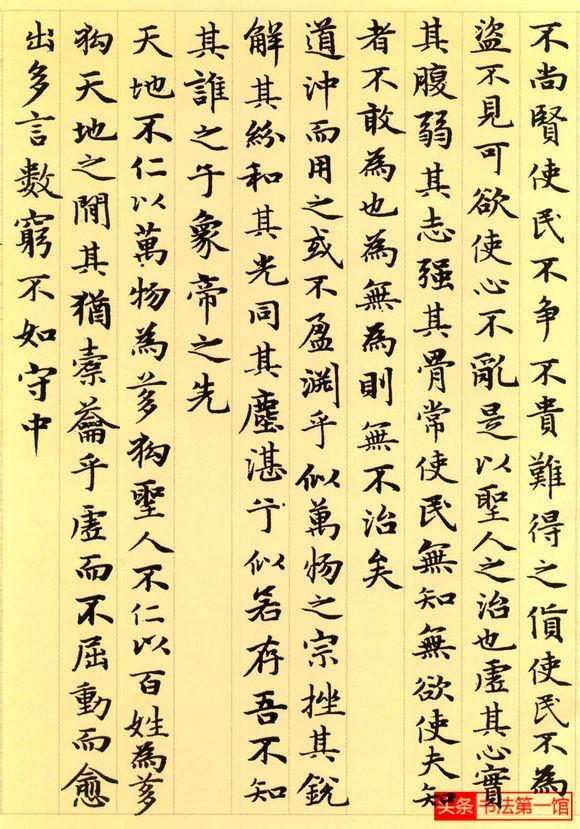 不尚賢使民不争不貴難得之貨使民不為
盜不見可欲使心不亂是以聖人之治也虛其心實
其腹弱其志强其骨常使民無知無欲使夫知
者不敢為也為無為則無不治矣
道沖而用之或不盈淵乎似萬物之宗挫其銳
解其紛和其光同其塵湛兮似若存吾不知
其誰之子象帝之先
天地不仁以萬物為芻狗聖人不仁以百姓為芻
狗天地之間其猶橐籥乎虛而不屈動而愈
出多言数窮不如守中
头条 书法第一馆